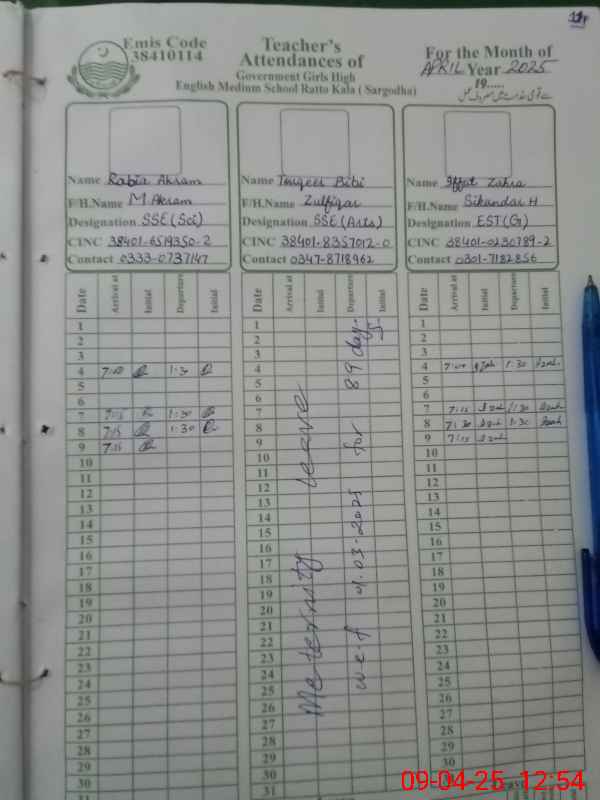 Emis Code
38410114
Teacher's
Attendances of
Government Girls High
English Medium School Ratto Kala ( Sargodha)
For the Month of
APRIL Year 2025
19......
Name Rabia Akram
F/H.Name M Akram
Designation SSE(Sci)
CINC 38401-6519350-2
Contact 0333-0737147
Name Bibi
F/H.Name Zulfiqar
Designation SSE(Arts)
CINC 38401-8357012-0
Contact 0347-8718962
Name Iffat Zahra
F/H.Name Sikandar H
Designation EST(G)
CINC 38401-0230789-2
Contact 0301-7182856
Date Arrival at Initial Departure Initial
1
2
3
4 1:30
5
6
7 7:15 1:30
8 7:15 1:30
9 7:15
10
11
12
13
14
15
16
17
18
19
20
21
22
23
24
25
26
27
28
29
30
31
Date Arrival at Initial Departure Initial
1
2
3
4
5
6
7
8
9
10
11
12
13
14
15
16
17
18
19
20
21
22
23
24
25
26
27
28
29
30
31
Meternity leave
w.e.f 01.03.2025 for 89 days
Date Arrival at Initial Departure Initial
1
2
3
4 1:30
5
6
7 7:15 1:30
8 1:30
9 7:15
10
11
12
13
14
15
16
17
18
19
20
21
22
23
24
25
26
27
28
29
30
09-04-25 12:54